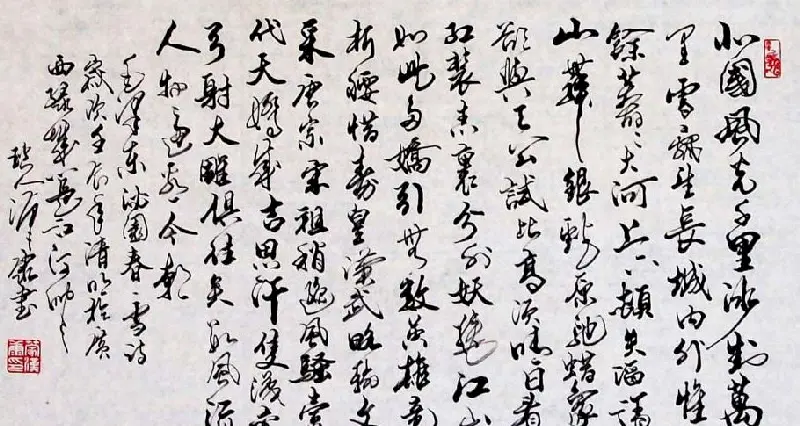 北國風光千里冰封萬
里雪飄望長城內外惟
餘莽〻大河上下頓失滔
山舞銀蛇原馳蠟象
欲與天公試比高須晴日看
紅裝素裹分外妖嬈江山
如此多嬌引無數英雄競
折腰惜秦皇漢武略輸文
采唐宗宋祖稍遜風騷壹
代天嬌成吉思汗隻識彎
弓射大雕俱往矣數風流
人物還看今朝
毛澤東沁園春雪詩
歲次壬辰年清明於廣
西綠城邕江河畔
楚人書